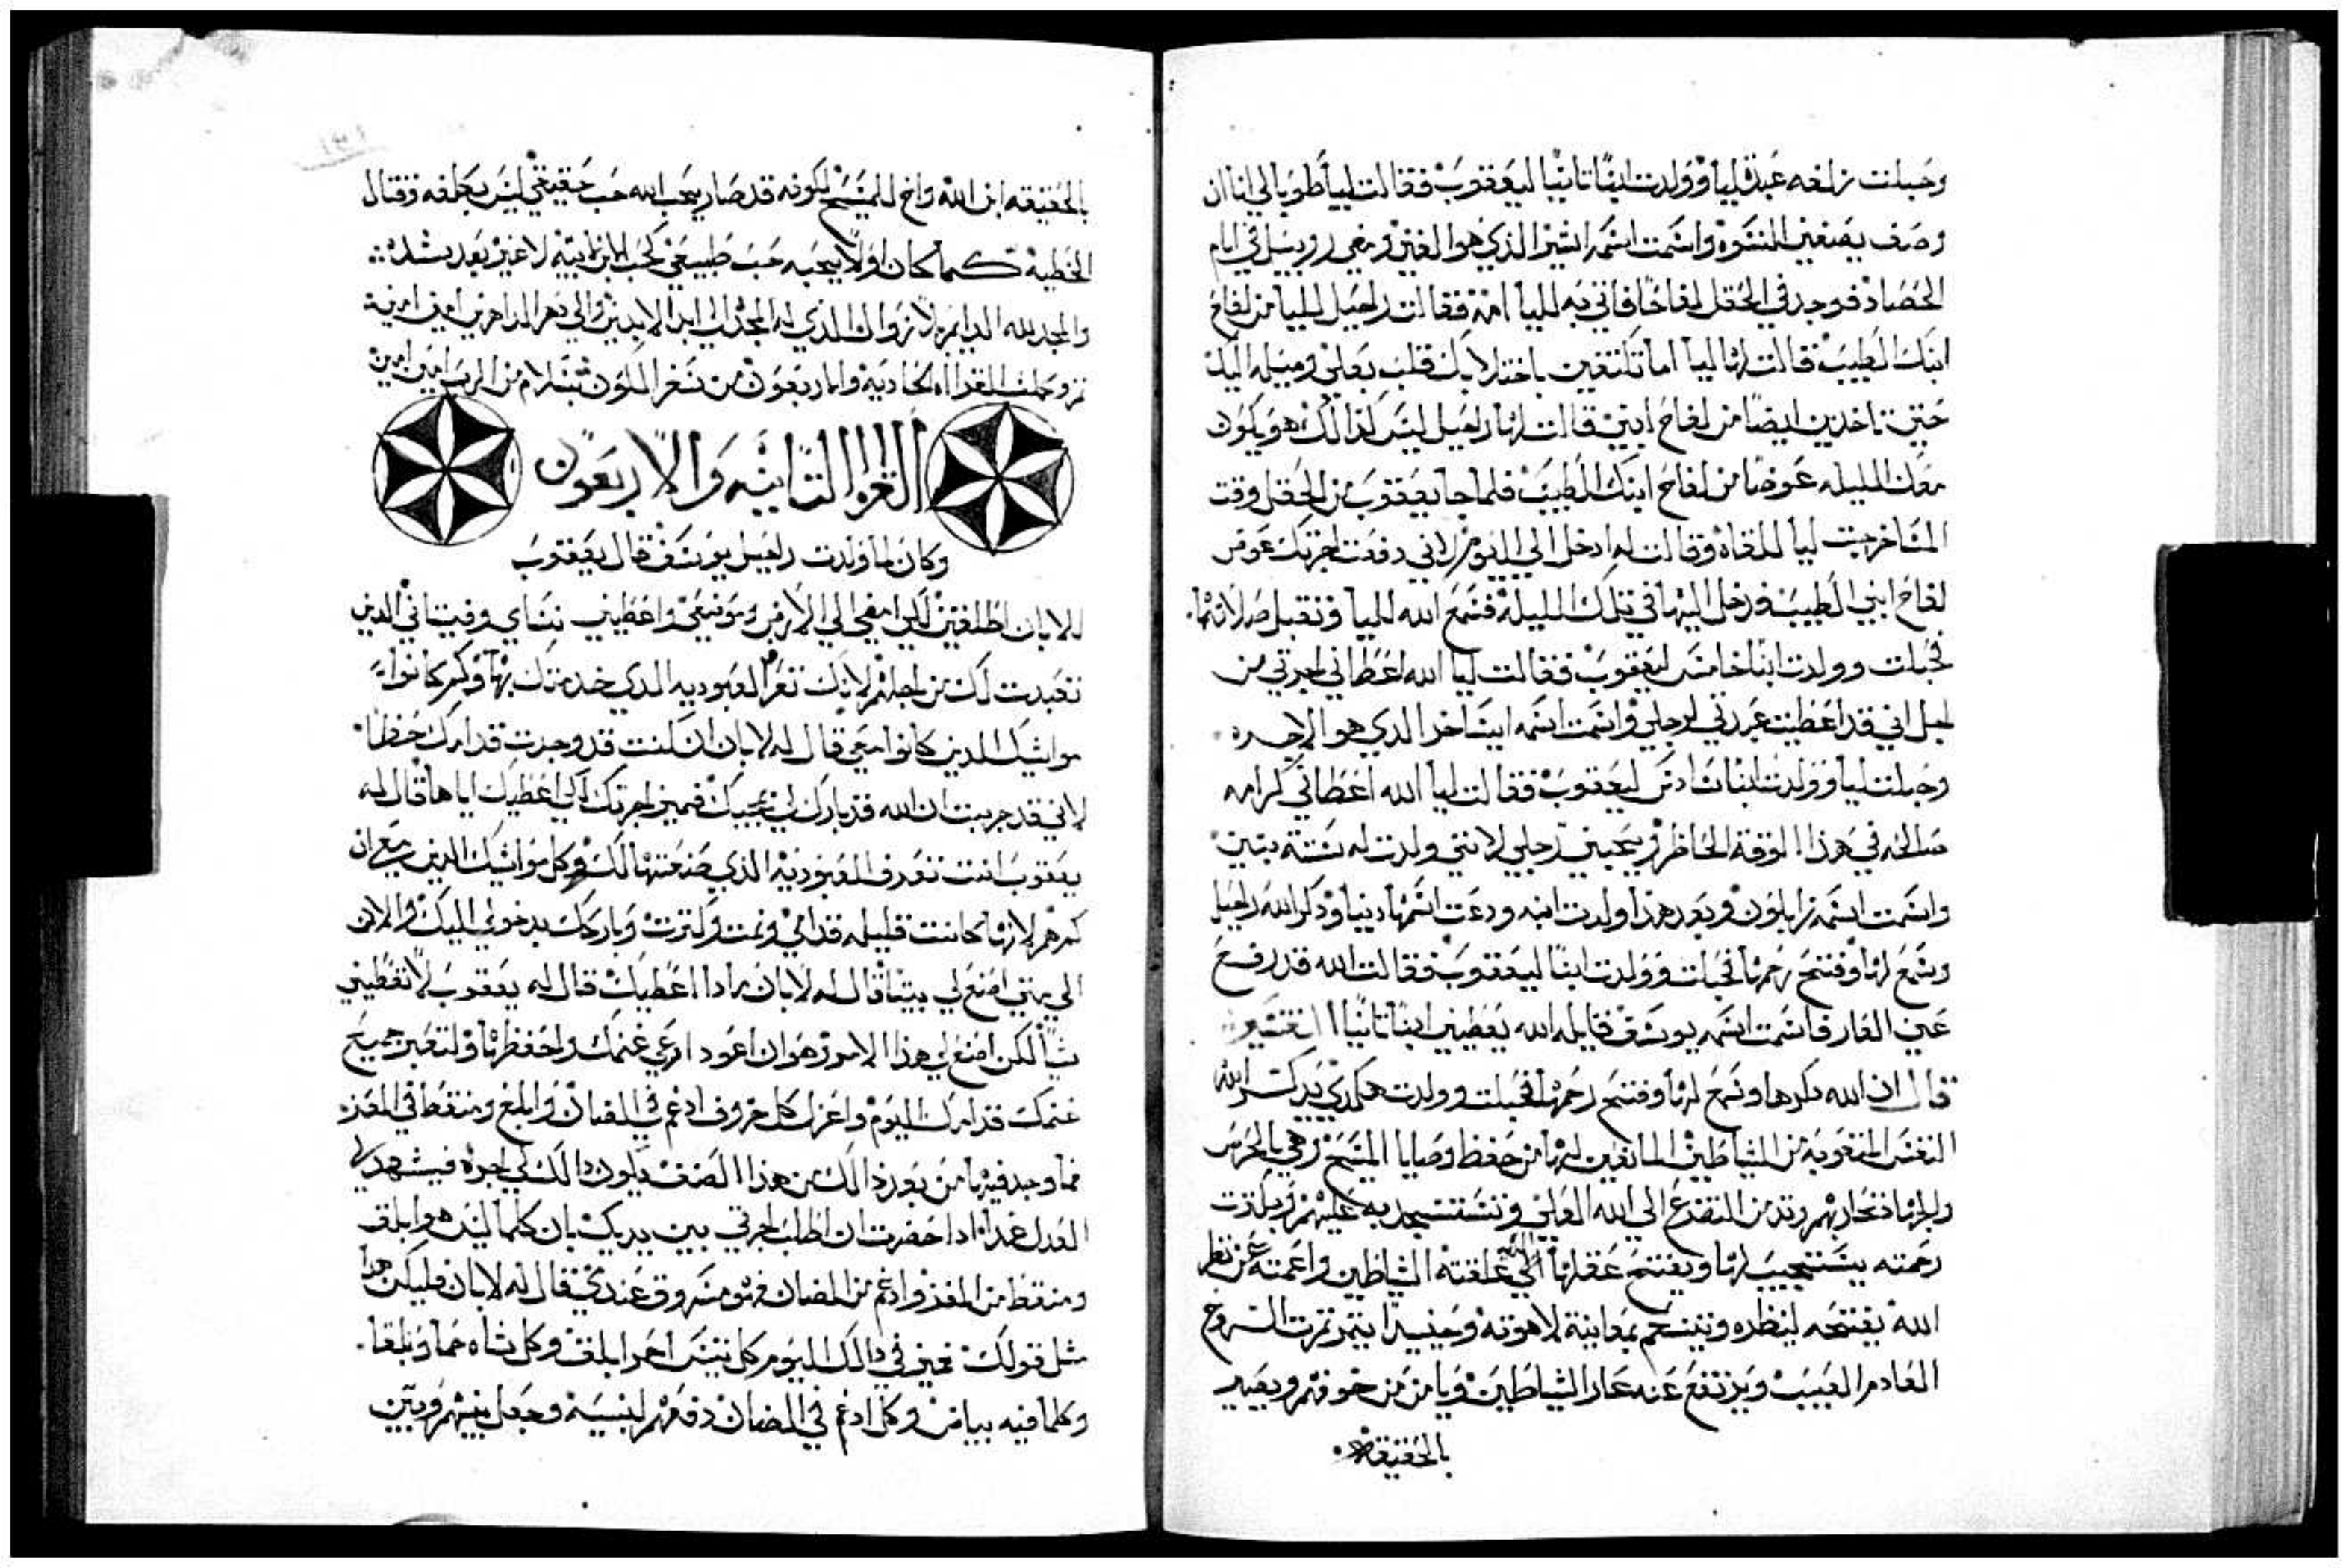 وحبلت زلفه عبدة ليا وولدت ايضًا تانيًا ليعقوب فقالت ليا طوبا لي انا ان
وصف يصنعني النسوه واسمت اسمه اشير الذي هو الغني ومضي روبيل في ايام
الحصاد فوجد في الحقل لفاحًا فاتي به لليا امه فقالت راحيل لليا من لفاح
ابنك الطيب قالت لها ليا اما تكتفين باخدك قلب بعلي وميله اليك
حتي تاخدين ايضًا من لفاح ابني قالت لها راحيل ليس كذالك هو يكون
معك الليله عوضًا من لفاح ابنك الطيب فلما جا يعقوب من الحقل وقت
المسا خرجت ليا للقاه وقالت له ادخل الي اليوم لاني دفعت اجرتك عوض
لفاح ابني الطيب فدخل اليها في تلك الليلة فسمع الله لليا وتقبل صلاتها
فحبلت وولدت ابنًا خامس ليعقوب فقالت ليا الله اعطاني اجرتي من
اجل اني قد اعطيت عبدتي لرجلي واسمت اسمه ايساخر الذي هو الاجره
وحبلت ليا وولدت ابنا سادس ليعقوب فقالت ليا الله اعطاني كرامه
صالحه في هذا الوقت الحاظر ويحبني رجلي لانني ولدت له ستة بنين
واسمت اسمه زابلون وبعد هذا ولدت ابنه ودعت اسمها دينا وذكر الله راحيل
وسمع لها وفتح رحمها فحبلت وولدت ابنًا ليعقوب فقالت الله قد رفع
عني العار فاسمت اسمه يوسف قايله الله يعطيني ابنًا تانيًا التفسير
قال ان الله ذكرها وسمع لها وفتح رحمها فحبلت وولدت هكدي يدكر الله
النفس من الشياطين المانعين لها من حفظ وصايا المسيح وهي بالحرص
والجهاد تحاربهم من التضرع الي الله العلي وتستنجد به عليهم وبكترت
رحمته يستجيب لها ويفتح عقلها الدي غلقته الشياطين واعمته عن نظر
الله يفتحه لينظره ويتنعم بمعاينة لاهوته وحينيدا يتمر تمرت الروح
العادم العيب ويرتفع عنه عار الشياطين ويامن من خوفهم ويصير
بالحقيقه
بالحقيقه ابن الله واخ للمسيح لكونه قد صار يحب الله حب حقيقي ليس يجلفه وقتال
الخطية كما كان اولًا يحبه حب طبيعي كحب الابن لابيه لا غير بعد بشده
والمجد لله الدايم بلا زوال الذي له المجد الي ابد الابدين والي دهر الداهرين امين امين
تم وكملت القراه الحادية والاربعون من سفر التكوين بسلام من الرب امين امين
القراه التانيه والاربعون
وكان لما ولدت راحيل يوسف قال يعقوب
للابان اطلقني لكي امضي الي الارض وموضعي واعطيني نساي وفتياتي الذين
تعبدت لك من اجلهم لانك تعرف العبوديه الذي خدمتك بها وكم كانوا
مواشيك الذين كانوا معي قال له لابان ان كنت قد وجدت قدامك حظا
لاني قد جربت ان الله قد بارك لي بمجيك فميز اجرتك الي اعطيك اياها قال له
يعقوب انت تعرف العبودية الذي صنعتها لك وكل مواشيك الذين معي ان
كم هم لانها كانت قليله قدامي ونمت وكترت وباركك بدخولي اليك والان
الي متي اصنع لي بيتا قال له لابان مادا اعطيك قال له يعقوب لا تعطيني
شيا لكن اصنع لي هذا الامر وهوان اعود ارعي غنمك واحفظها ولتعبر جميع
غنمك قدامك اليوم واعزل كل خروف ادغم في الضان وابلق ومنقط في المعز
فما وجد فيها من بعد ذالك من هذا الصنف يكون دالك لي اجره فيشهد لي
العدل غدا ادا حضرت ان اطلب اجرتي بين يديك بان كلما ليس هو ابلق
ومنقط من المعز وادغم من الضان فهو مسروق عندي قال له لابان فليكن هدا
مثل قولك فميز في دالك اليوم كل تيس احمر ابلق وكل شاه حما وبلقا
وكلما فيه بياض وكل ادغم في الضان دفعهم لبنيه وجعل بينهم وبين